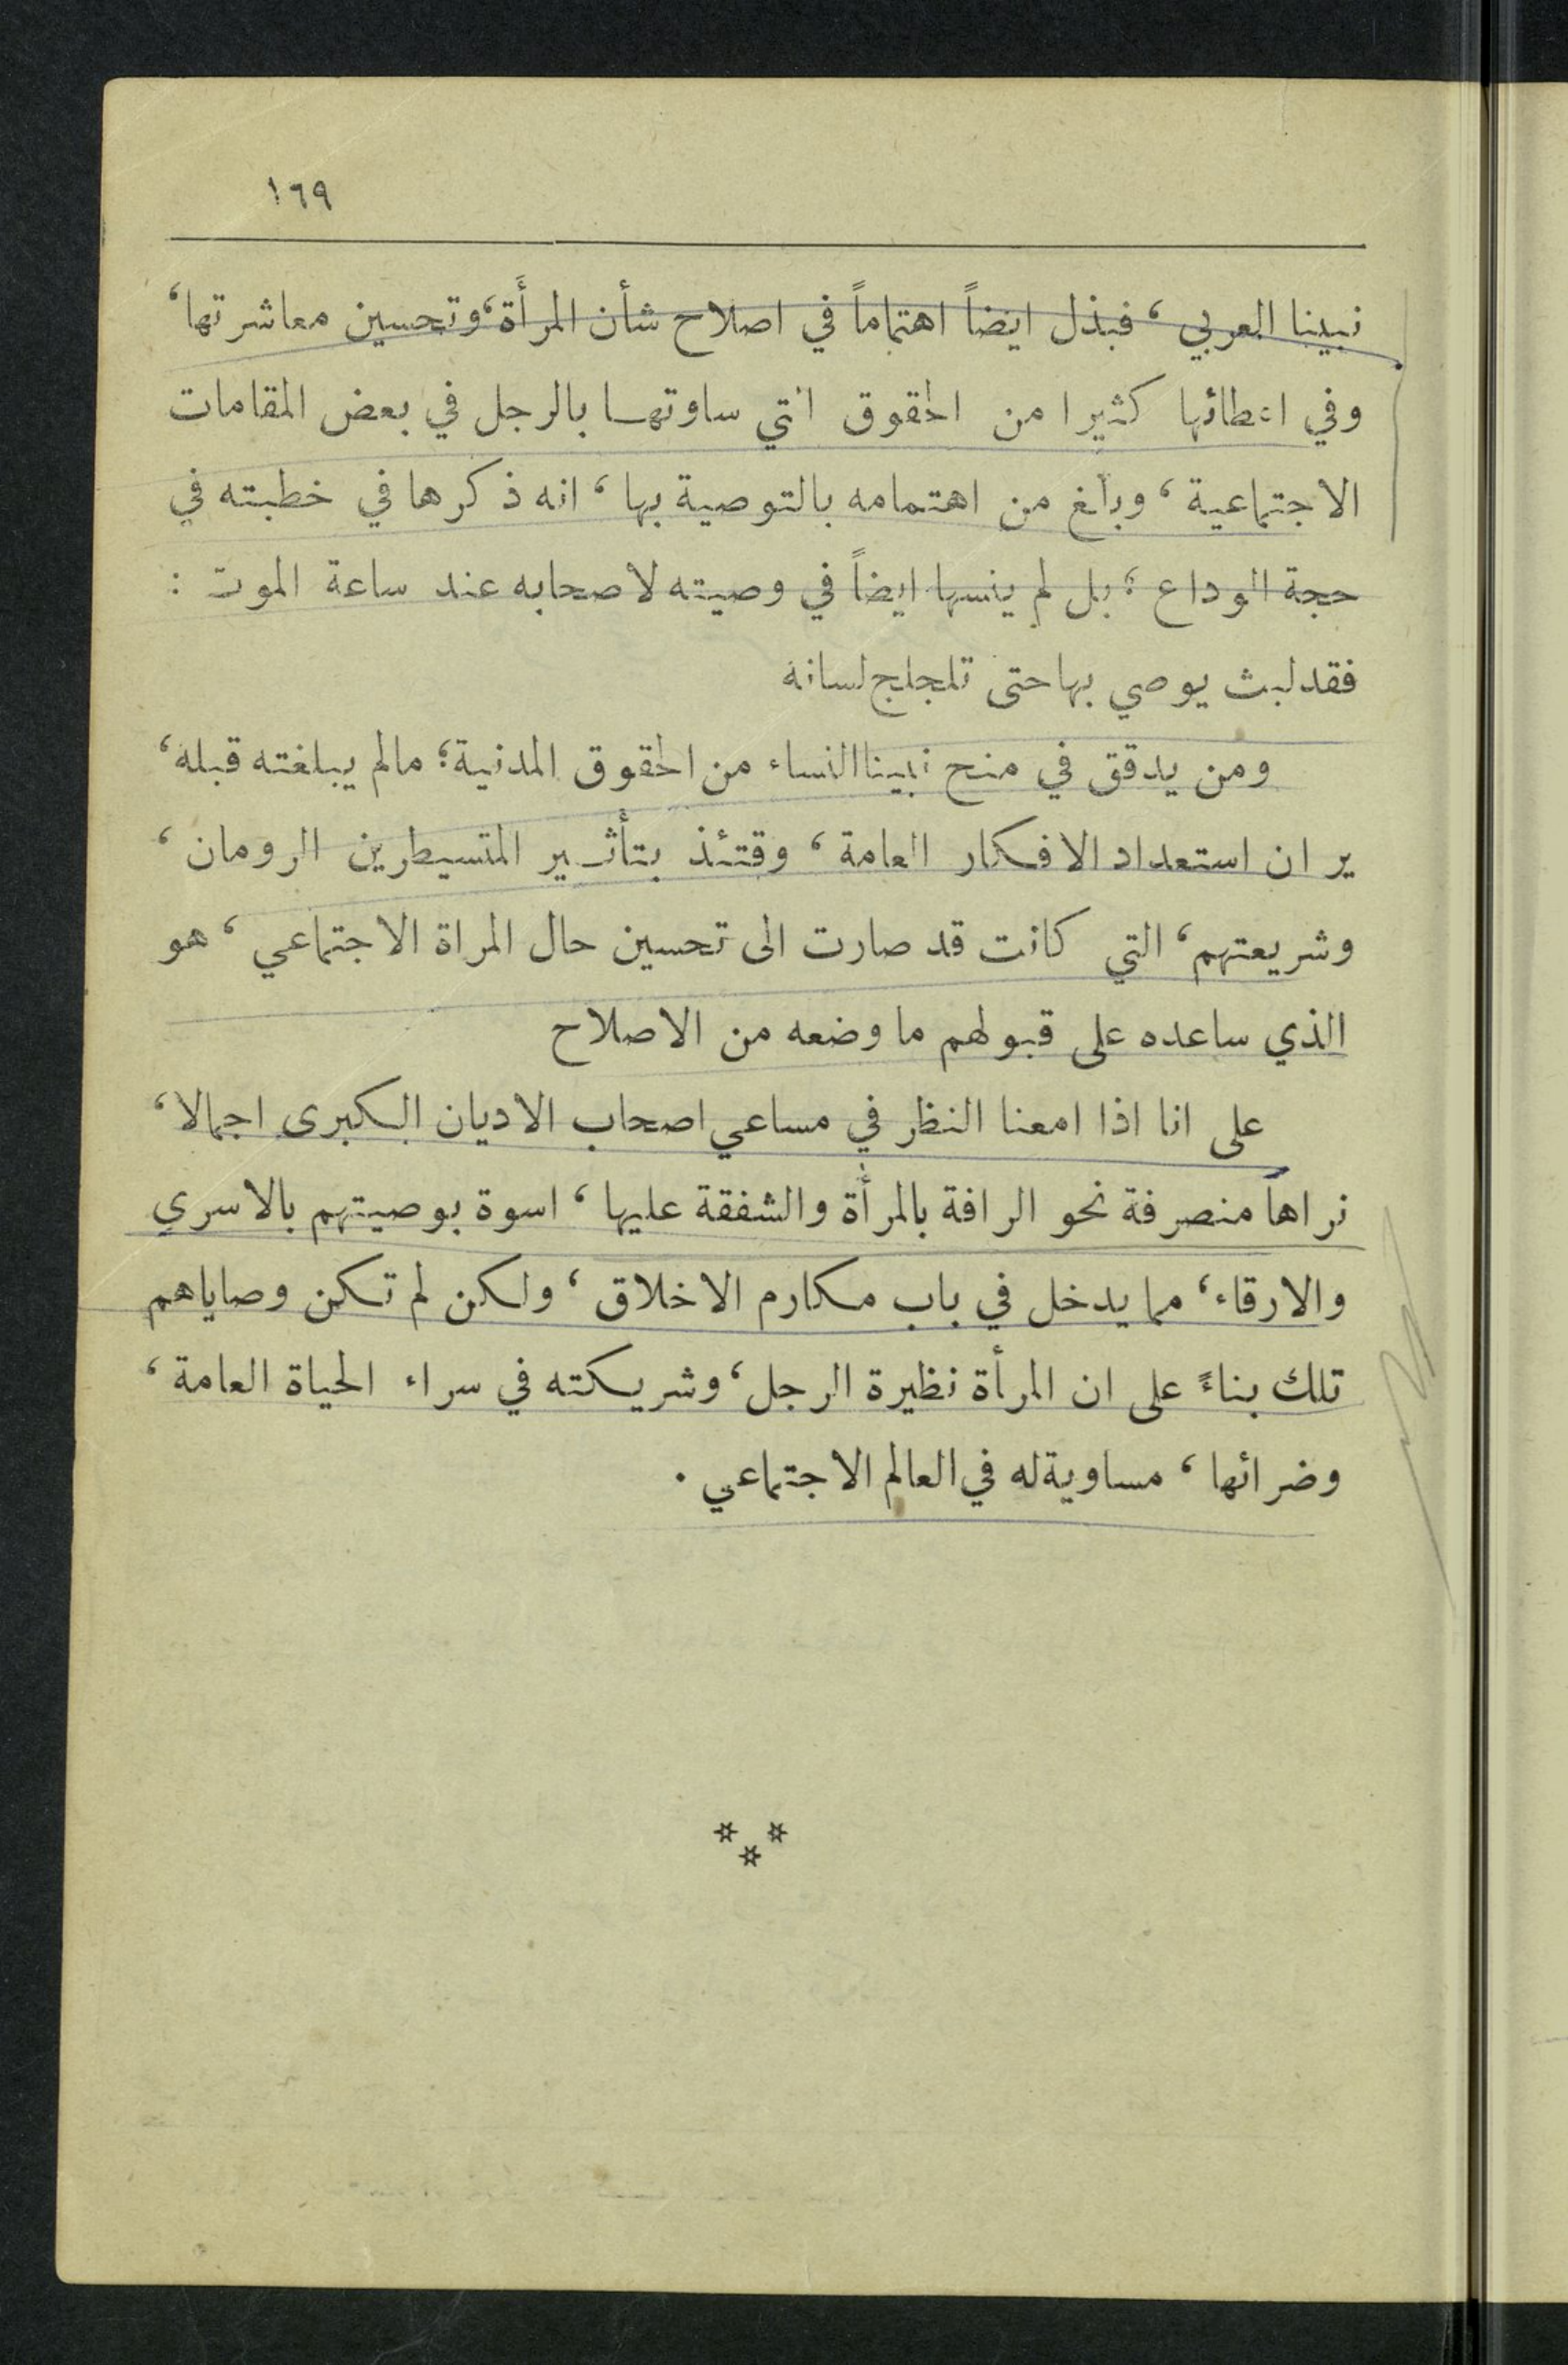 ١٦٩
نبينا العربي، فبذل ايضاً اهتماماً في اصلاح شأن المرأة، وتحسين معاشرتها،
وفي اعطائها كثيرا من الحقوق التي ساوتها بالرجل في بعض المقامات
الاجتماعية، وبلغ من اهتمامه بالتوصية بها، انه ذكرها في خطبته في
حجة الوداع؛ بل لم ينسها ايضاً في وصيته لاصحابه عند ساعة الموت :
فقد لبث يوصي بها حتى تلجلج لسانه
ومن يدقق في منح نبينا النساء من الحقوق المدنية؛ مالم يبلغته قبله،
ير ان استعداد الافكار العامة، وقتئذ بتأثير المتسيطرين الرومان،
وشريعتهم، التي كانت قد صارت الى تحسين حال المراة الاجتماعي، هو
الذي ساعده على قبولهم ما وضعه من الاصلاح
على انا اذا امعنا النظر في مساعي اصحاب الاديان الكبرى اجمالا،
نراها منصرفة نحو الرافة بالمرأة والشفقة عليها، اسوة بوصيتهم بالاسرى
والارقاء، مما يدخل في باب مكارم الاخلاق، ولكن لم تكن وصاياهم
تلك بناءً على ان المرأة نظيرة الرجل، وشريكته في سراء الحياة العامة،
وضرائها، مساوية له في العالم الاجتماعي .